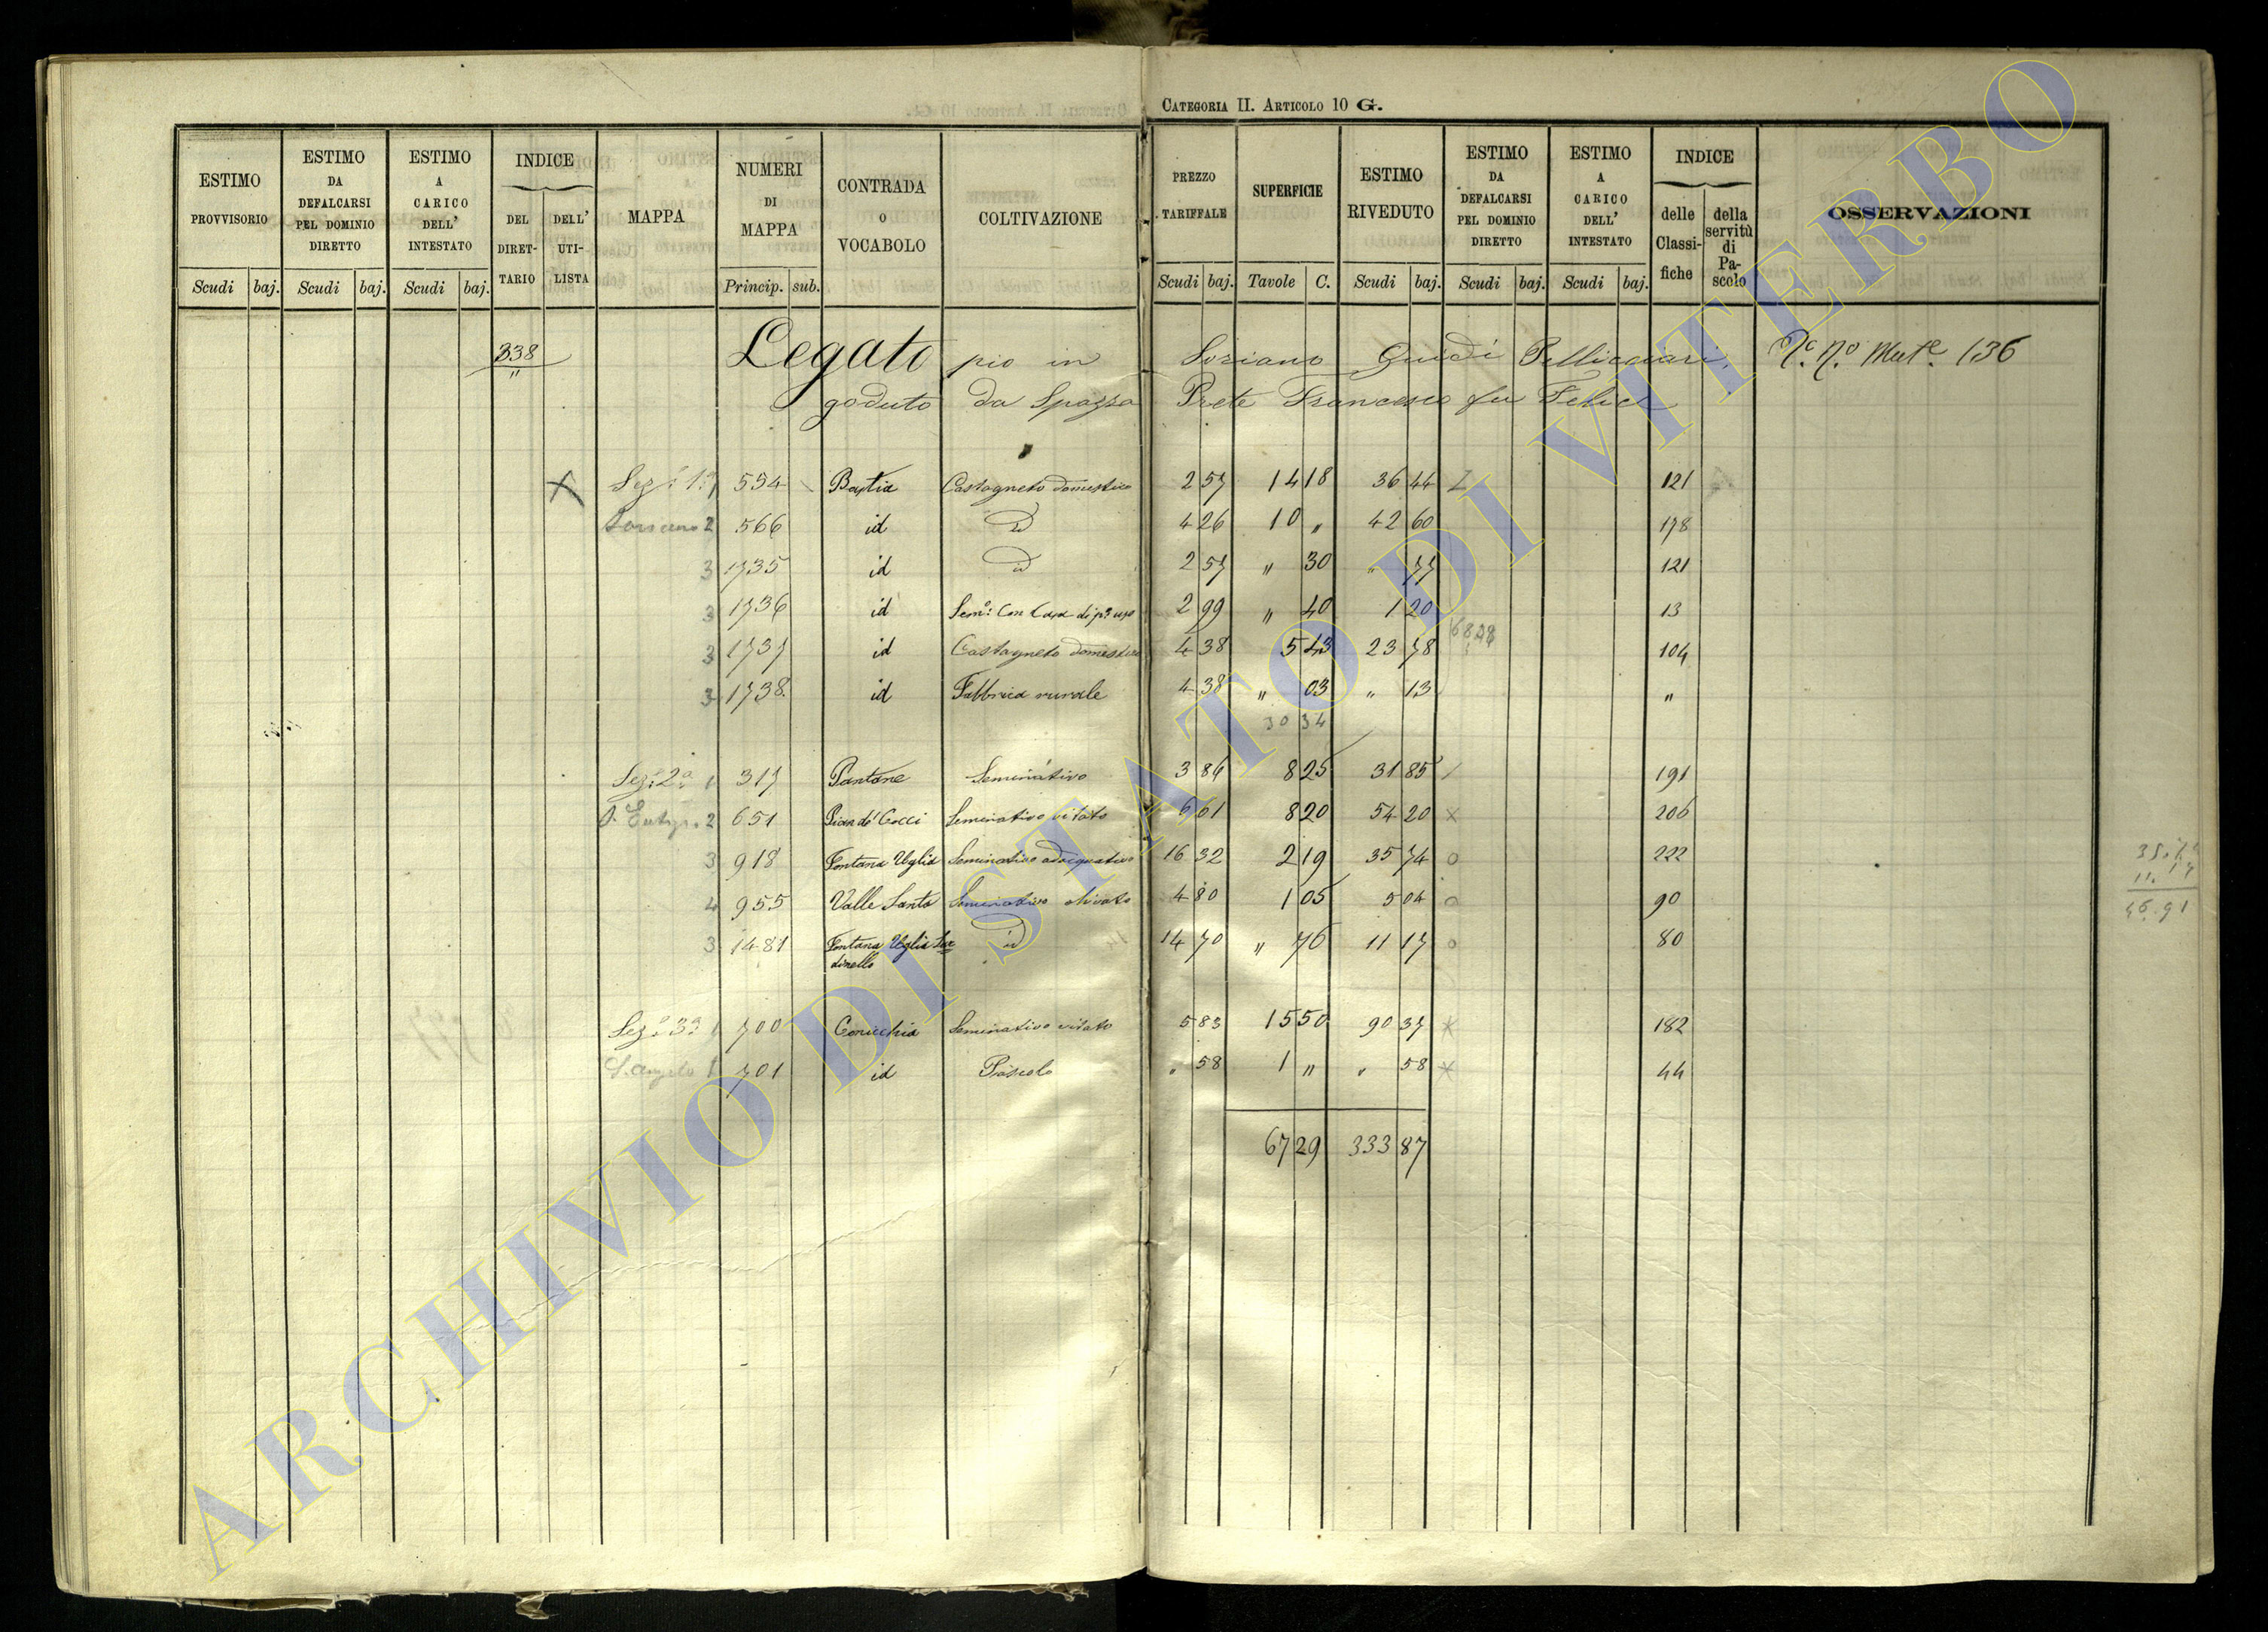 CATEGORIA II. ARTICOLO 10 G.
ESTIMO PROVVISORIO Scudi baj.
ESTIMO DA DEFALCARSI PEL DOMINIO DIRETTO Scudi baj.
ESTIMO A CARICO DELL' INTESTATO Scudi baj.
INDICE DEL DIRET-TARIO DELL' UTI-LISTA
MAPPA
NUMERI DI MAPPA Princip. sub.
CONTRADA O VOCABOLO
COLTIVAZIONE
PREZZO TARIFFALE Scudi baj.
SUPERFICIE Tavole C.
ESTIMO RIVEDUTO Scudi baj.
ESTIMO DA DEFALCARSI PEL DOMINIO DIRETTO Scudi baj.
ESTIMO A CARICO DELL' INTESTATO Scudi baj.
INDICE delle Classi-fiche della servitù di Pa-scolo
OSSERVAZIONI
338 Legato pio in Soriano Guidi N.º Mut.e 136
"
goduto da Spazza Prete Francesco fu Felice
X Sez.e 1.a 1 554 Bastia Castagneto domestico 2 57 14 18 36 44 121
Soriano 2 566 id id 4 26 10 " 42 60 178
3 1735 id id 2 57 " 30 " 77 121
3 1736 id Sem.o con Casa di p.o uso 2 99 " 40 1 20 13
6828
3 1737 id Castagneto domestico 4 38 5 43 23 78 104
3 1738 id Fabbrica rurale 4 38 " 03 " 13 "
30 34
Sez.e 2.a 1 317 Pantane Seminativo 3 86 8 25 31 85 191
S. Eutiz. 2 651 Pian de' Cocci Seminativo vitato 6 61 8 20 54 20 x 206
3 918 Fontana Uglia Seminativo adacquativo 16 32 2 19 35 74 o 222
4 955 Valle Santa Seminativo olivato 4 80 1 05 5 04 o 90
3 1481 Fontana Uglia id 14 70 " 76 11 17 o 80
11.17
46.91
Sez.e 3.a 1 700 Conicchia Seminativo vitato 5 83 15 50 90 37 x 182
S. Angelo 1 701 id Pascolo " 58 1 " " 58 x 44
67 29 333 87
ARCHIVIO DI STATO DI VITERBO